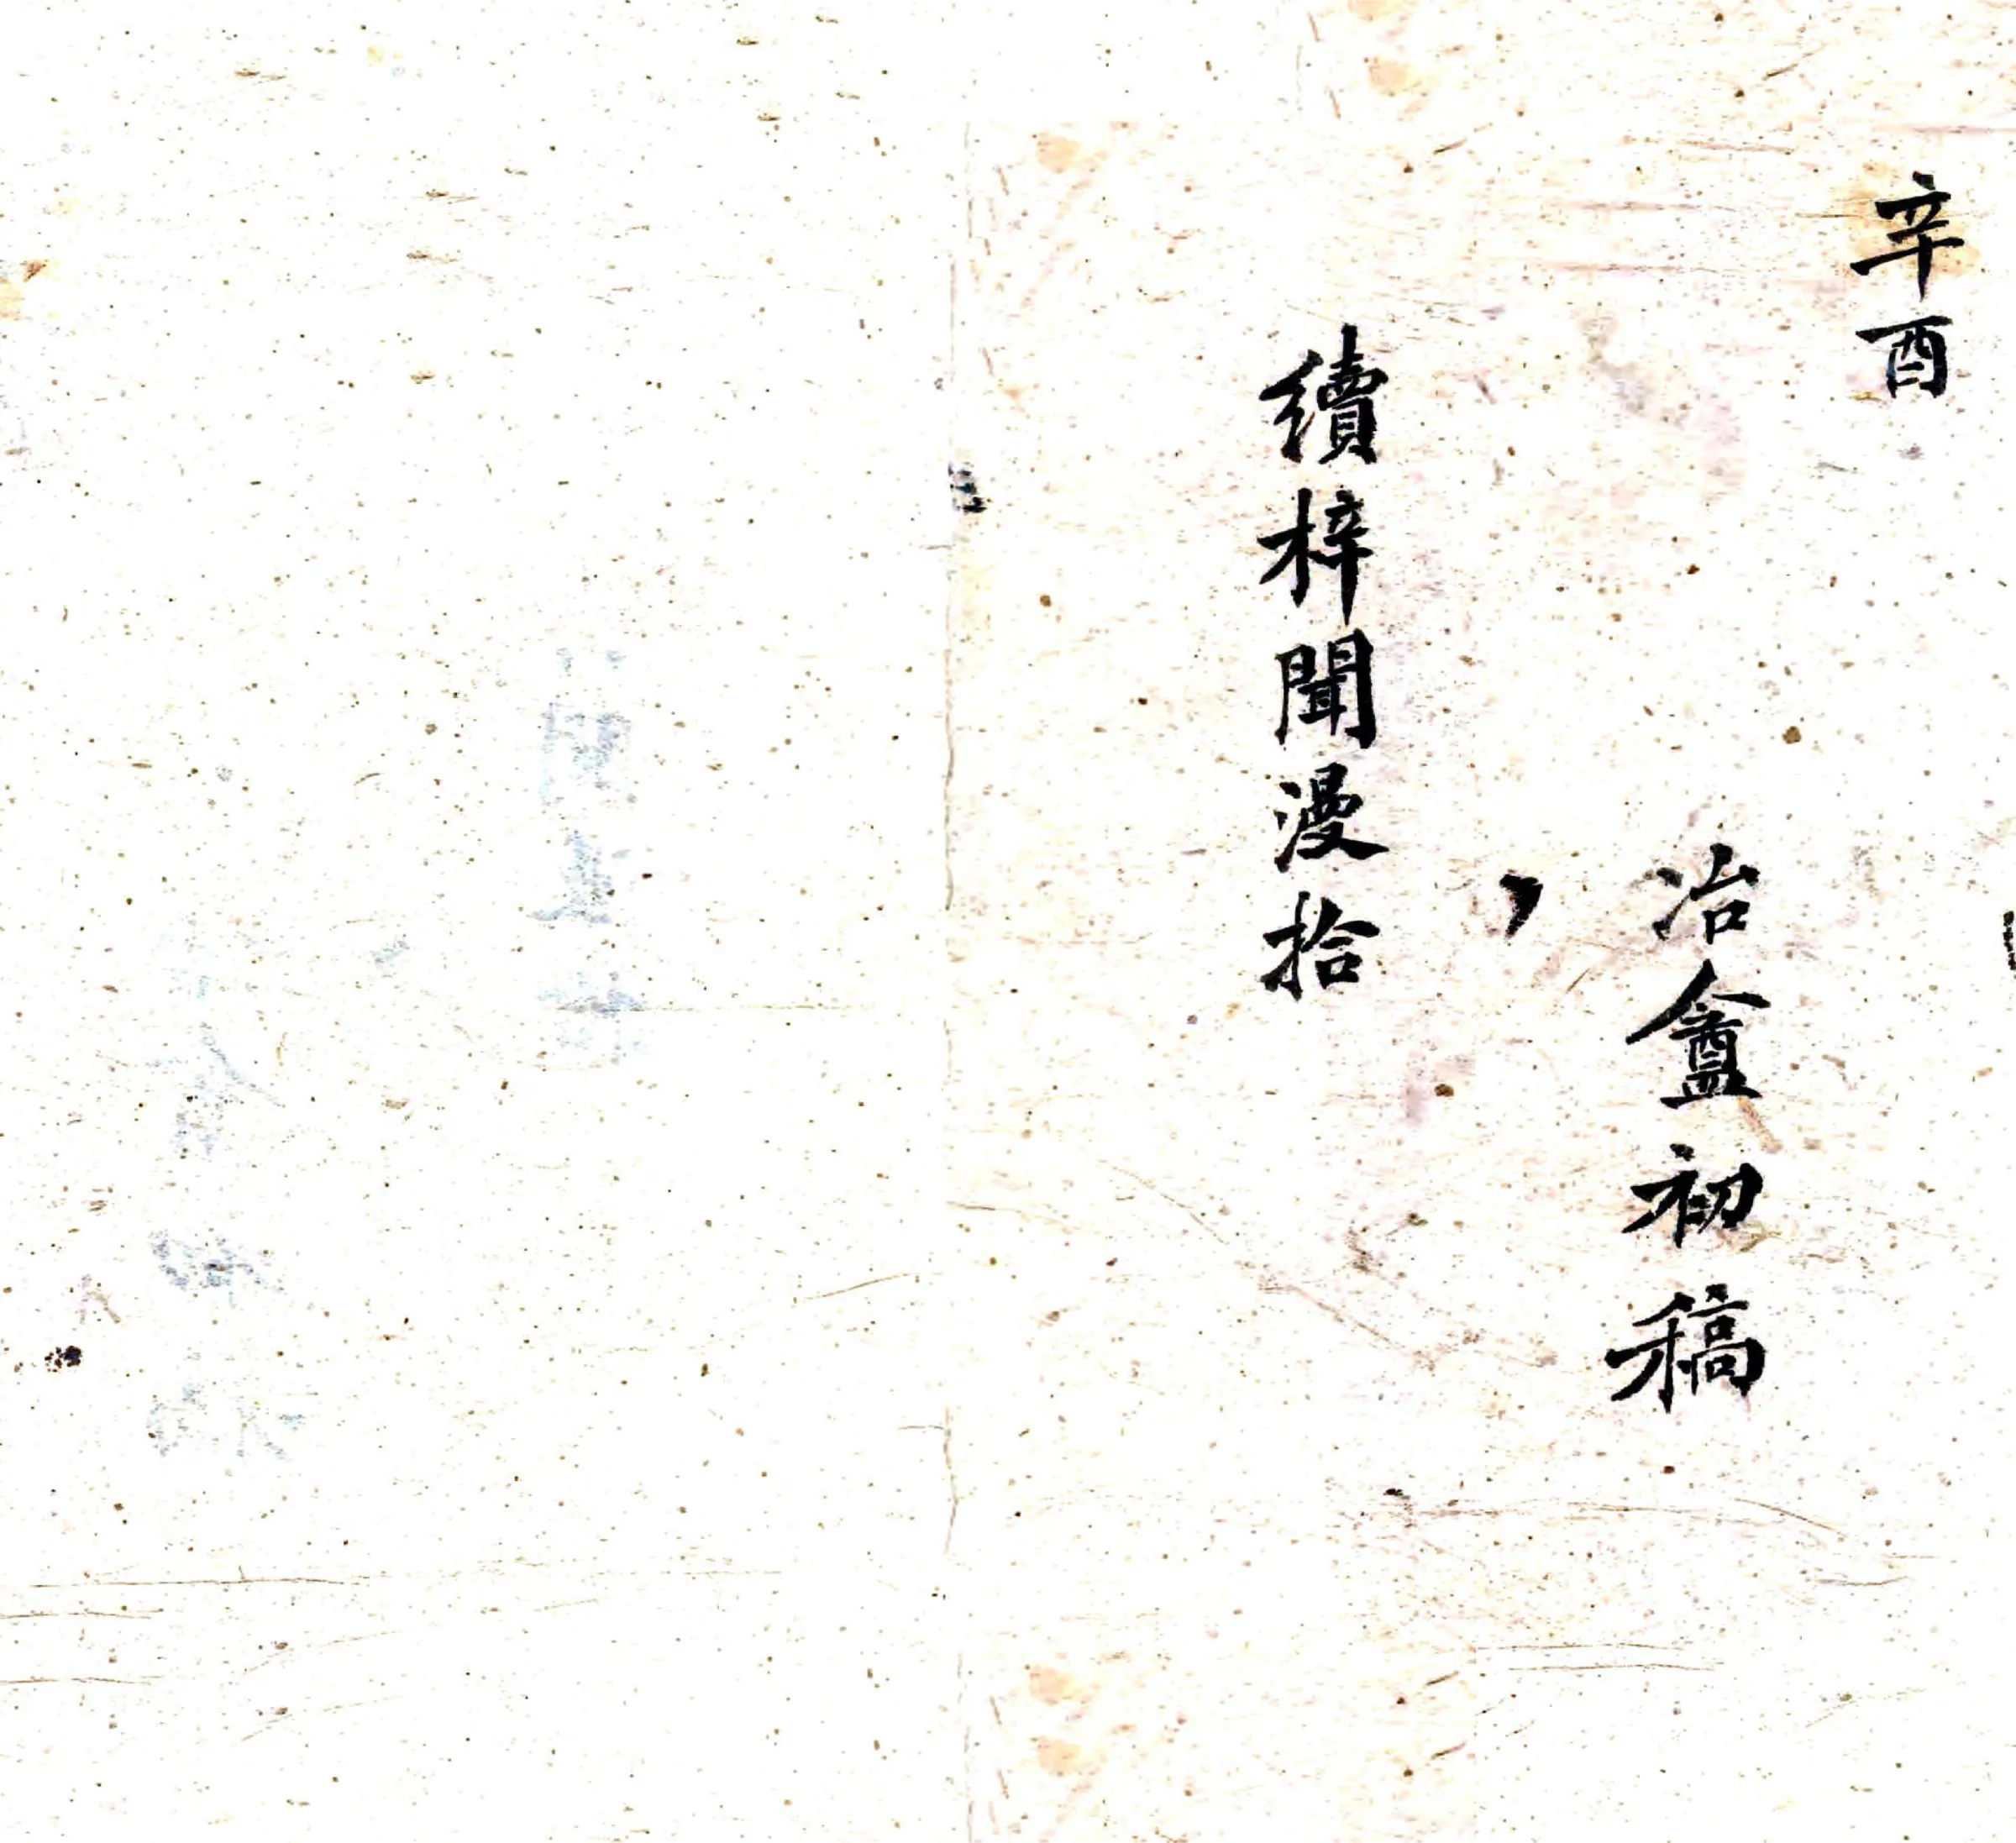 辛酉
冶盦初稿
續梓聞漫拾